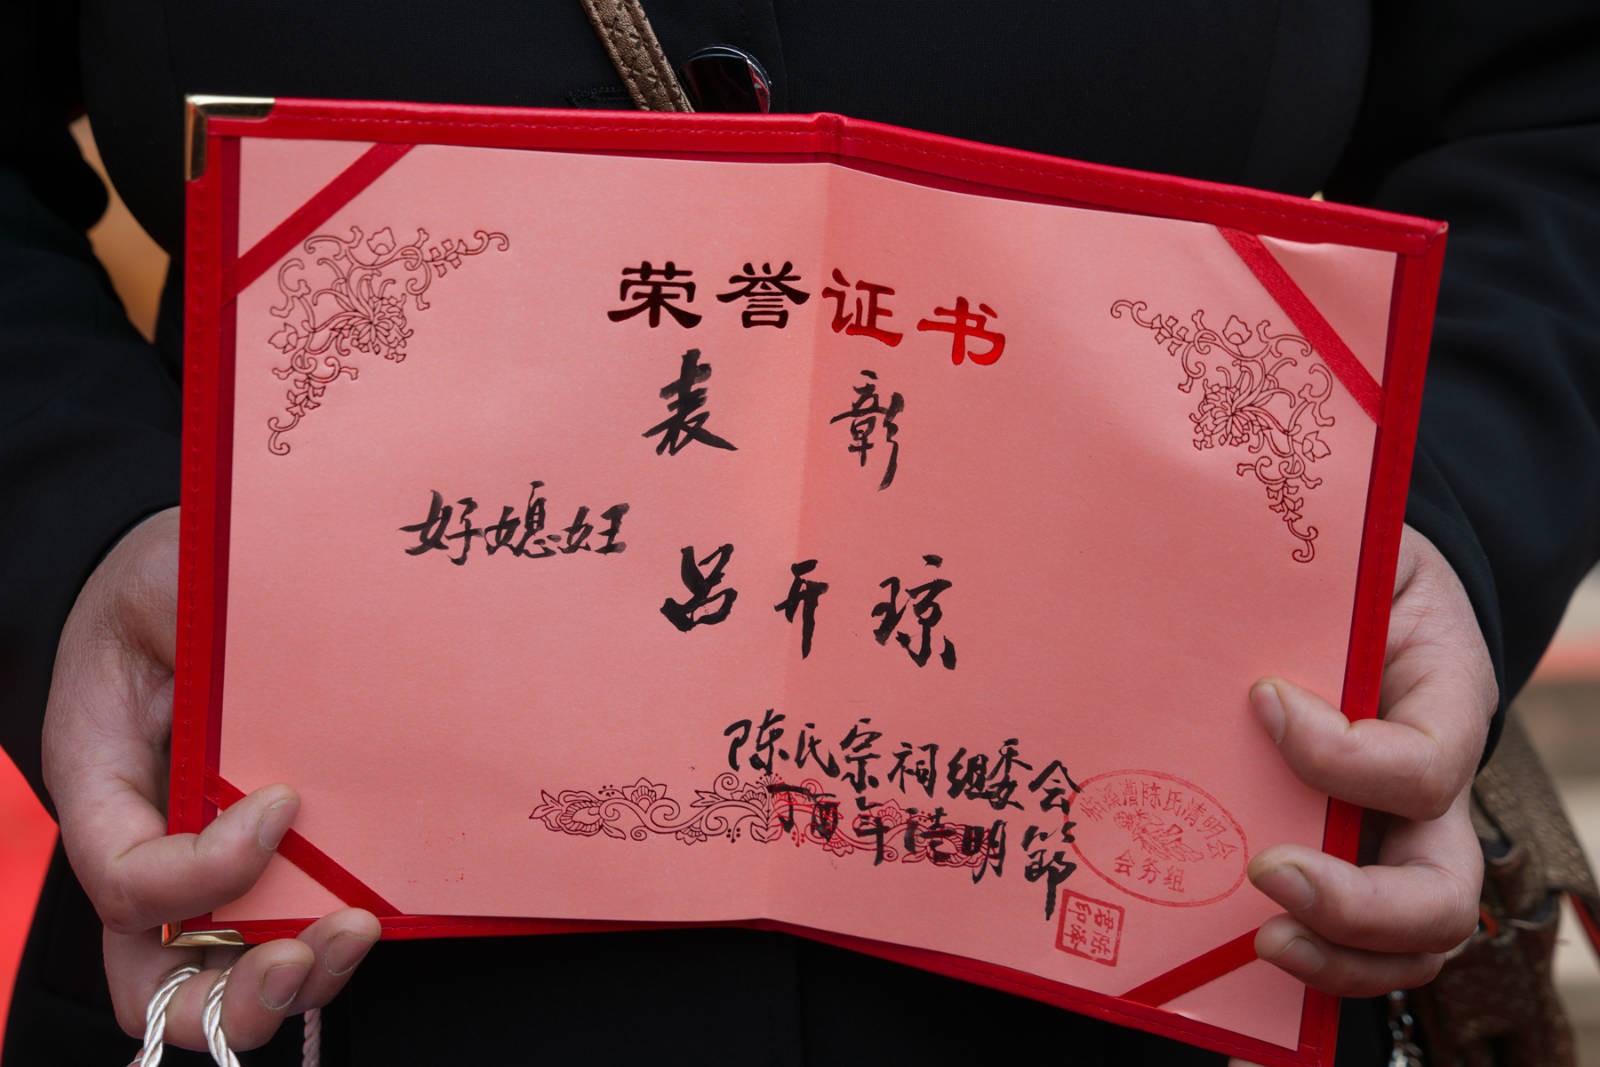 荣誉证书
表彰
好媳妇
吕开琼
陈氏宗祠组委会
丁酉年清明节
陈氏清明会
会务组